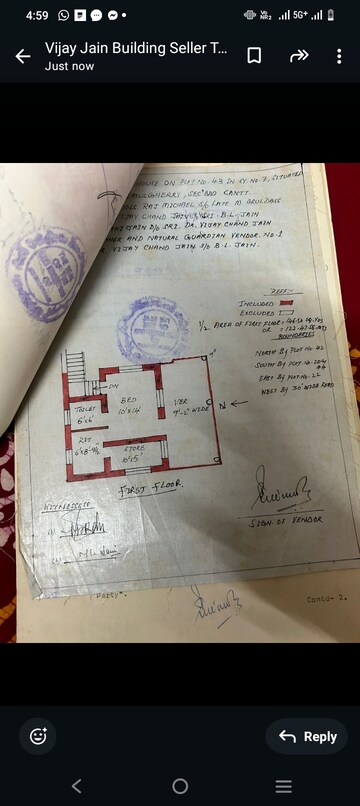 4:59
5G+
Vijay Jain Building Seller T...
Just now
HOUSE ON PLOT NO. 43 IN SY. NO. 3, SITUATED
SEC'BAD CANTT.
RAJ MICHAEL S/O LATE M
VIJAY CHAND JAIN S/O SRI. B.L. JAIN
JAIN D/O SRI. DR. VIJAY CHAND JAIN
AND NATURAL GUARDIAN VENDOR. NO.1
VIJAY CHAND JAIN S/O B.L. JAIN.
INCLUDED
EXCLUDED
1/2 AREA OF FIRST FLOOR
OR
BOUNDARIES
NORTH BY PLOT NO. 42
SOUTH BY PLOT NO.
44
EAST BY PLOT NO. 22
WEST BY 30' WIDE ROAD
DN
TOILET
6'x6'
BED
10'x14'
VER
9'-2" WIDE
N
STORE
FIRST FLOOR.
WITNESSES
1)
2)
SIGN. OF VENDOR
Party-
Contd- 2.
Reply